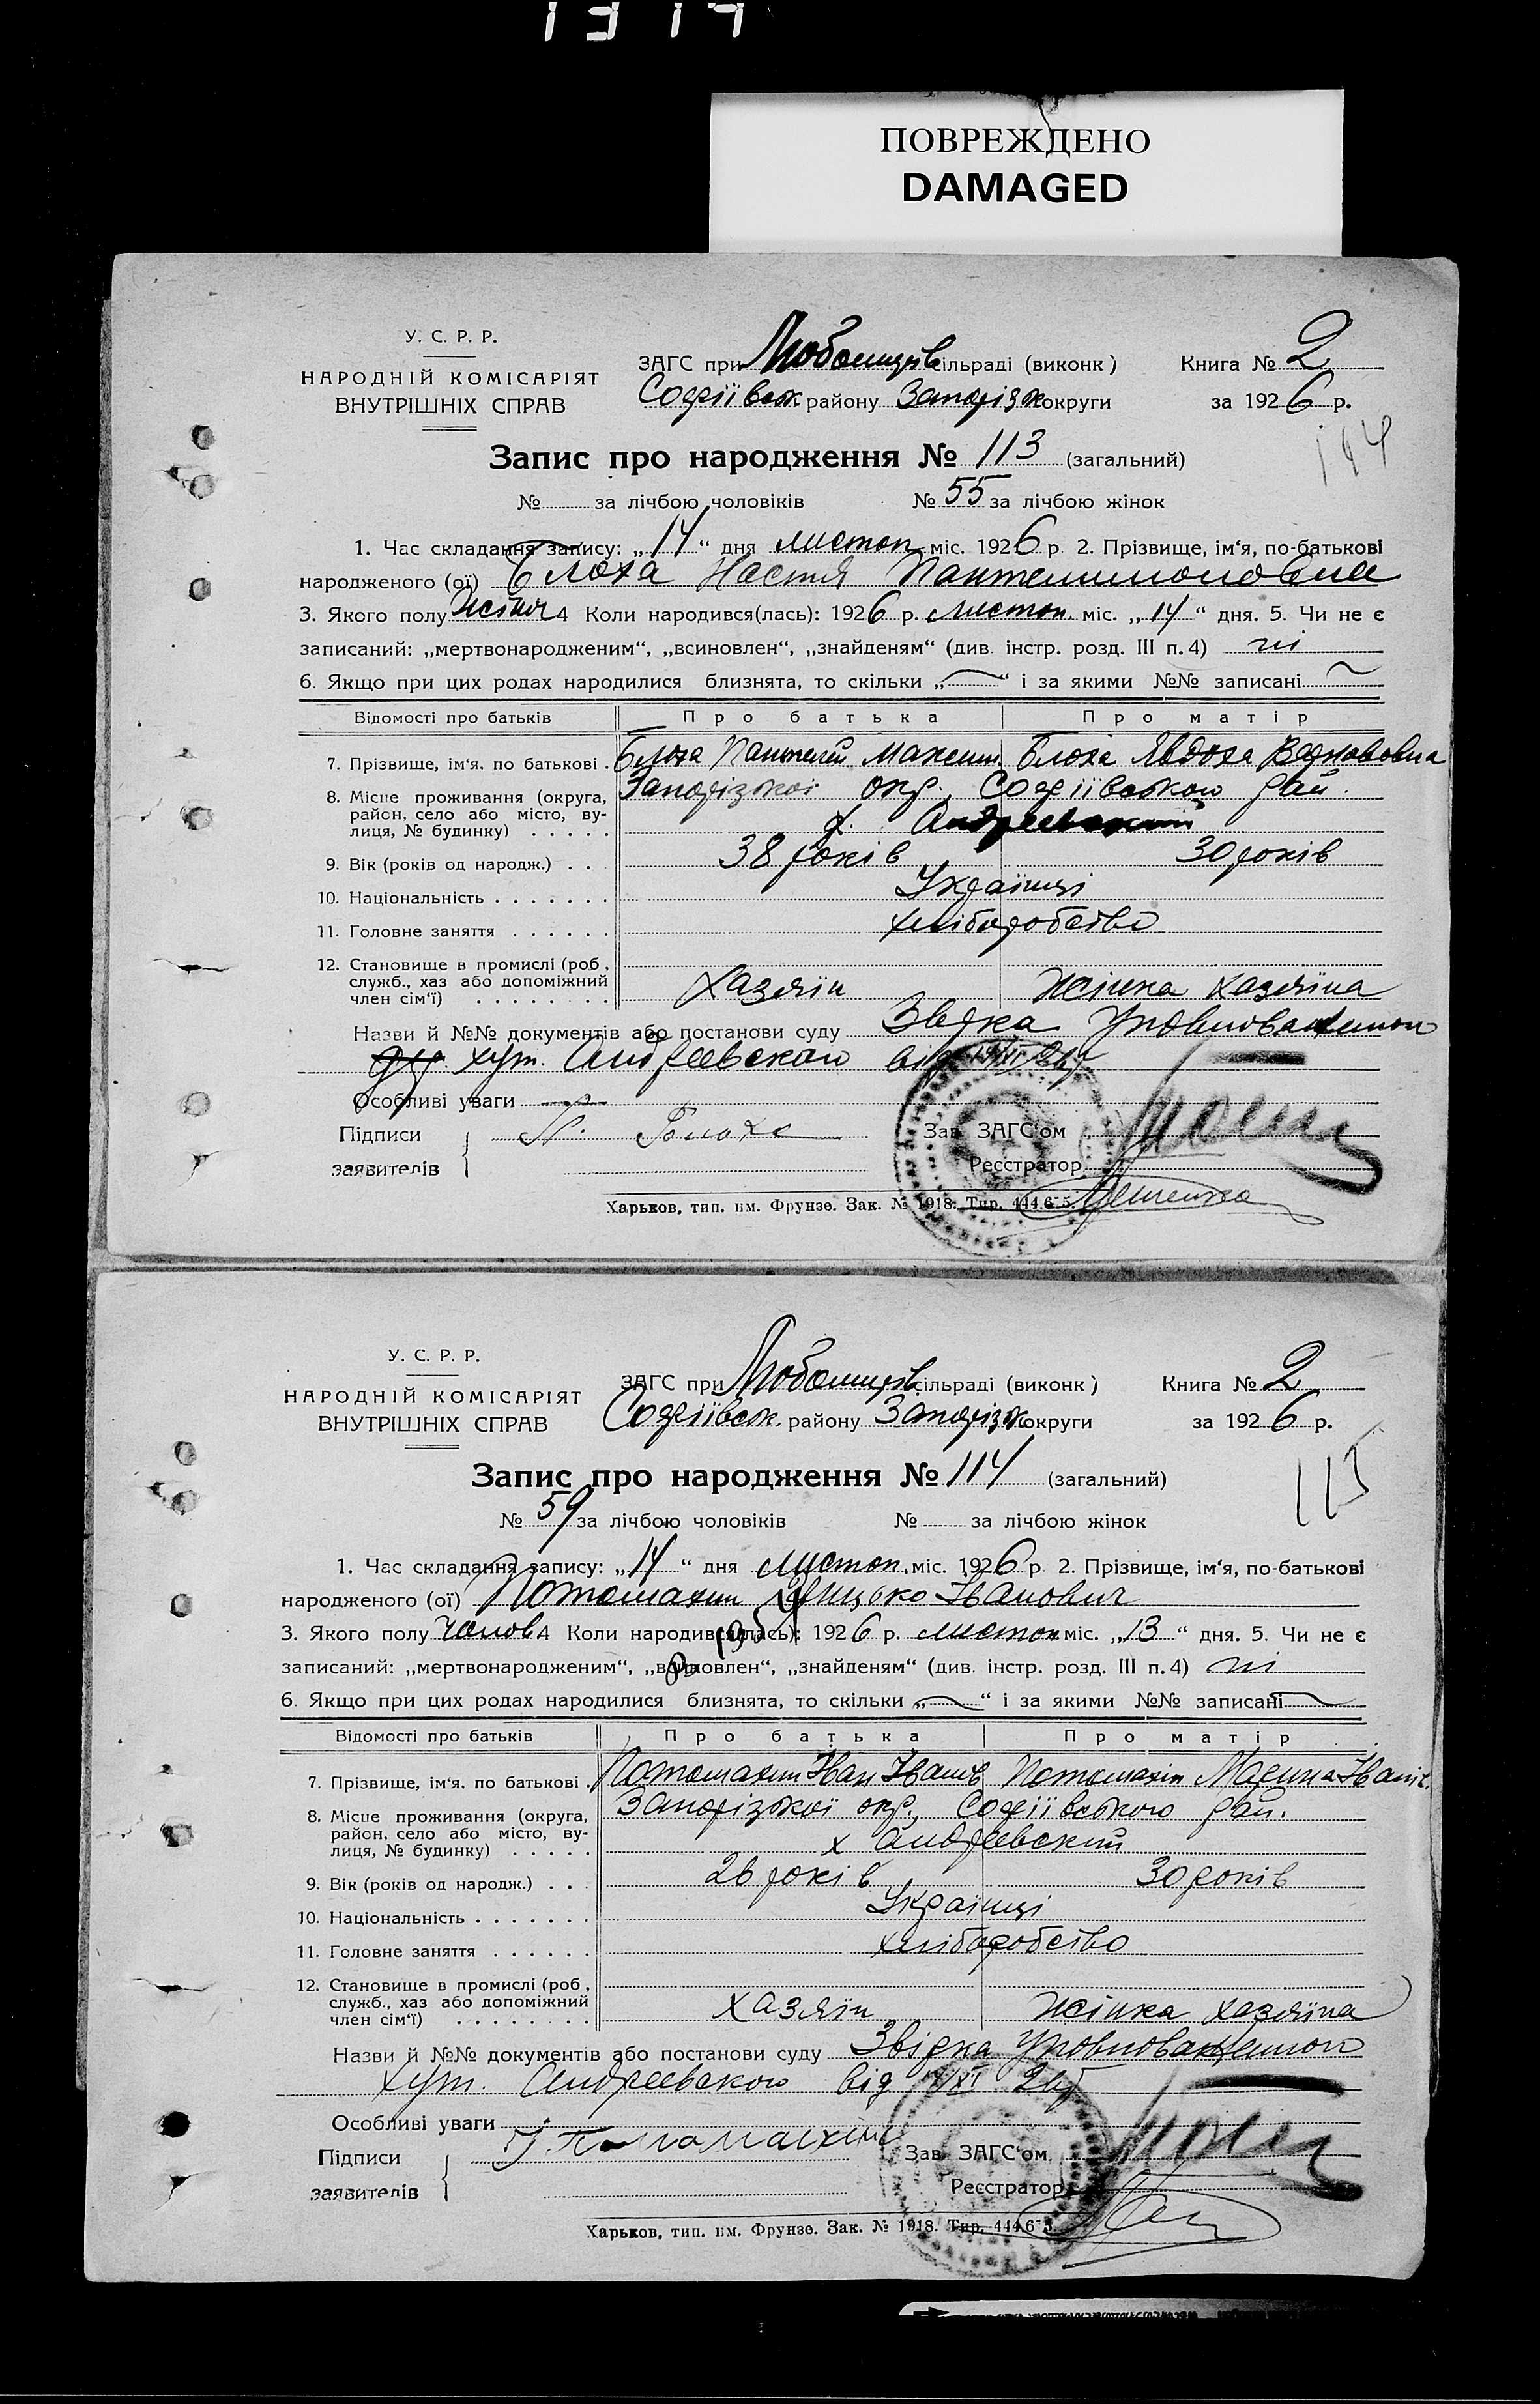 1317
ПОВРЕЖДЕНО
DAMAGED
У. С. Р. Р.
НАРОДНІЙ КОМІСАРІЯТ
ВНУТРІШНІХ СПРАВ
ЗАГС при Любомирів сільраді (виконк) Книга № 2
Софіївськ. району Запоріжж округи за 1926 р.
Запис про народження № 113 (загальний)
114
№ за лічбою чоловіків № 55 за лічбою жінок
1. Час складання запису: „14“ дня листоп міс. 1926 р. 2. Прізвище, ім‘я, по-батькові
народженого (ої) Блоха Настя Пантелимоновна
3. Якого полу Жіноч 4 Коли народився(лась): 1926 р. Листоп. міс. „14“ дня. 5. Чи не є
записаний: „мертвонародженим“, „всиновлен“, „знайденям“ (див. інстр. розд. III п. 4) ні
6. Якщо при цих родах народилися близнята, то скільки „ “ і за якими №№ записані
Відомості про батьків Про батька Про матір
7. Прізвище, ім‘я, по батькові . Блоха Пантелей Максим. Блоха Явдоха
8. Місце проживання (округа, Запорізької окр., Софіївського рай.
район, село або місто, ву-
лиця, № будинку) . . . . . х. Андреевский
9. Вік (років од народж.) . . 38 років 30 років
10. Національність . . . . . . . Українці
11. Головне заняття . . . . . . хліборобство
12. Становище в промислі (роб.,
служб., хаз або допоміжний
член сім‘ї) . . . . . . . . Хазяїн Жінка хазяїна
Назви й №№ документів або постанови суду Звідка Уповноваженого
хут. Андреевского від 14/XI 26р
Особливі уваги
Підписи П. Блоха Зав. ЗАГС‘ом
заявителів Реєстратор
Харьков, тип. им. Фрунзе. Зак. № 1918. Тир. 444.675.
У. С. Р. Р.
НАРОДНІЙ КОМІСАРІЯТ
ВНУТРІШНІХ СПРАВ
ЗАГС при Любомирів сільраді (виконк) Книга № 2
Софіївськ. району Запоріжж округи за 1926 р.
Запис про народження № 114 (загальний)
115
№ 59 за лічбою чоловіків № за лічбою жінок
1. Час складання запису: „14“ дня листоп. міс. 1926 р. 2. Прізвище, ім‘я, по-батькові
народженого (ої) Потомахин Грицько Іванович
3. Якого полу Чолов 4 Коли народився(лась): 1926 р. листоп міс. „13“ дня. 5. Чи не є
записаний: „мертвонародженим“, „всиновлен“, „знайденям“ (див. інстр. розд. III п. 4) ні
6. Якщо при цих родах народилися близнята, то скільки „ “ і за якими №№ записані
Відомості про батьків Про батька Про матір
7. Прізвище, ім‘я, по батькові . Потомахин Іван Іванів Потомахін Марина Іванів.
8. Місце проживання (округа, Запорізької окр., Софіївського рай.
район, село або місто, ву-
лиця, № будинку) . . . . . х Андреевский
9. Вік (років од народж.) . . . 26 років 30 років
10. Національність . . . . . . . Українці
11. Головне заняття . . . . . . хліборобство
12. Становище в промислі (роб.,
служб., хаз або допоміжний
член сім‘ї) . . . . . . . . хазяїн Жінка хазяїна
Назви й №№ документів або постанови суду Звідка Уповноваженого
хут. Андреевского від 14/XI 26р
Особливі уваги
Підписи Зав. ЗАГС‘ом
заявителів Реєстратор
Харьков, тип. им. Фрунзе. Зак. № 1918. Тир. 444.675.